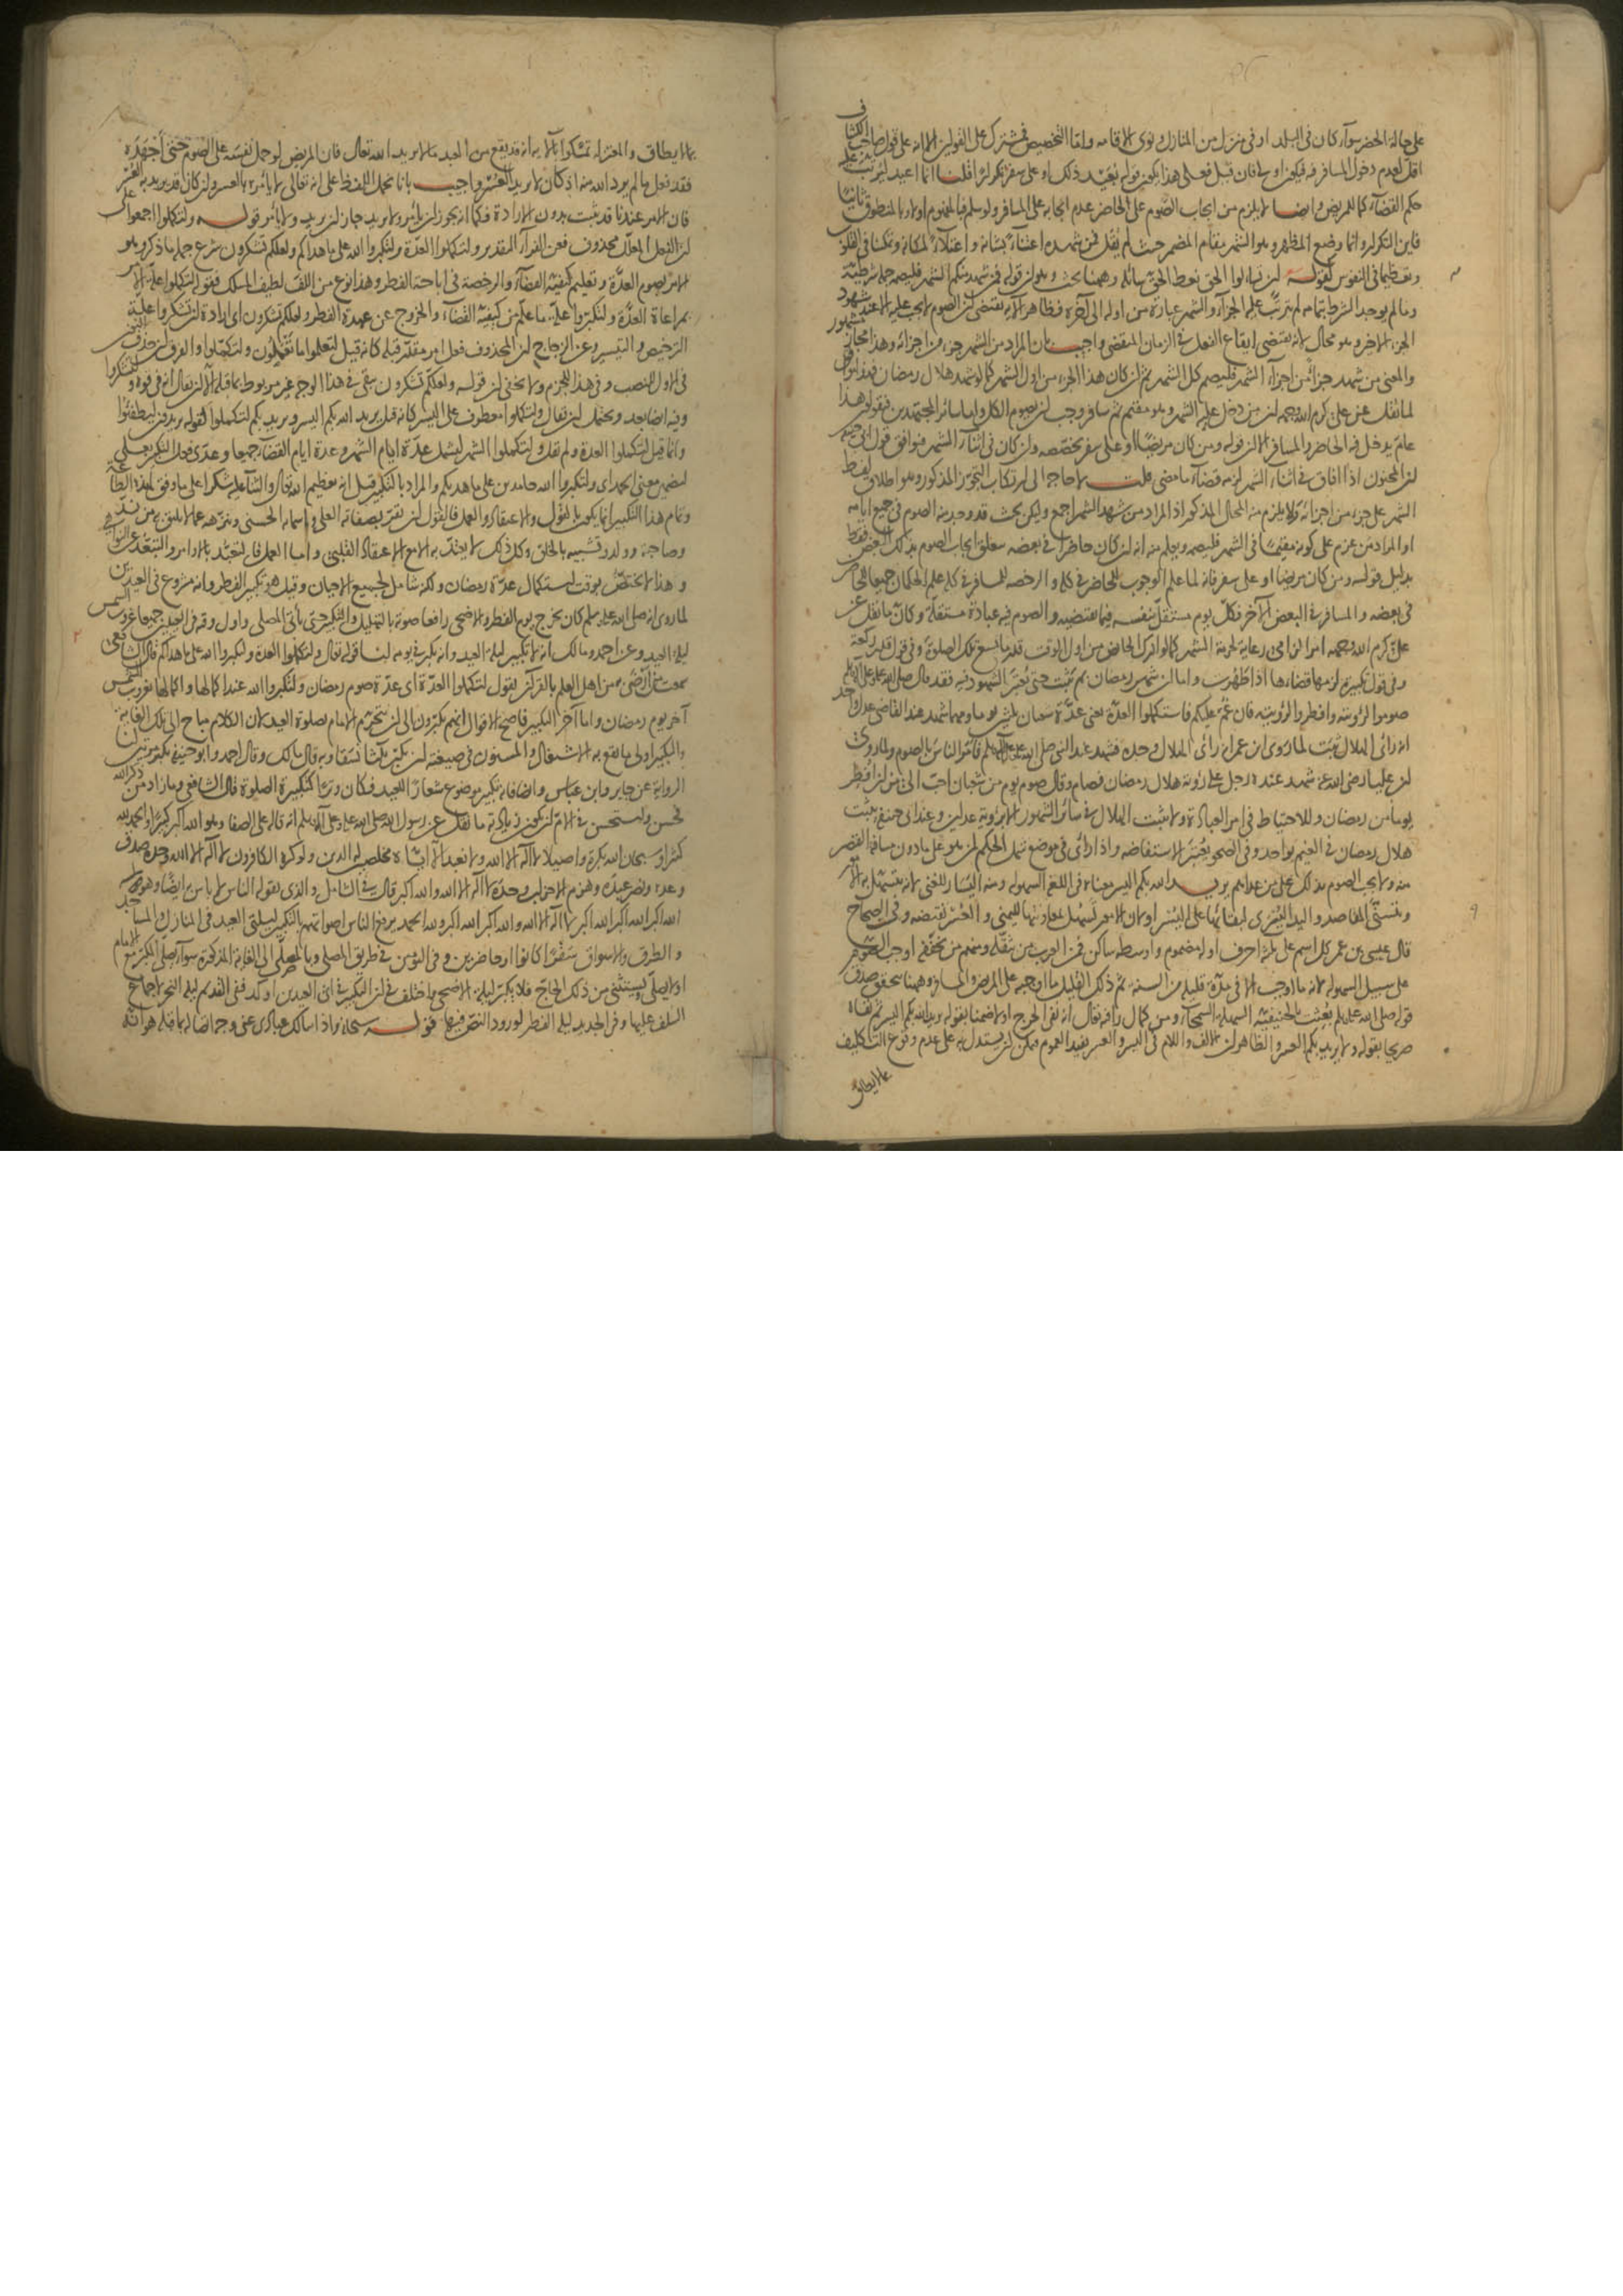 على حالة الحضر سواء كان فى البلد او فى منزل من المنازل ونوى الاقامة واما التخصيص فمشترك على القولين الا انه على قول صاحب الكشاف
اقل لعدم دخول المسافر فيه فيكون اولى فان قيل فعلى هذا يكون قوله بعيد ذلك او على سفر تكرارا قلنا انما اعيد ليرتب عليه
حكم القضاء كما للمريض وايضا لا يلزم من ايجاب الصوم على الحاضر عدم ايجابه على المسافر ولو سلم فبالمفهوم اولا وبالمنطوق ثانيا
فاين التكرار وانما وضع المظهر وهو الشهر مقام المضمر حيث لم يقل فمن شهده اعتناء بشانه واعتلاء لمكانه وتمكنا فى القلوب
وتعظيما فى النفوس كقوله ان تسالوا الحق نعط الحق سائله وههنا بحث وهو ان قوله فمن شهد منكم الشهر فليصمه جملة شرطية
وما لم يوجد الشرط بتمامه لم يترتب عليه الجزاء والشهر عبارة من اوله الى آخره فظاهر الآية يقتضى ان الصوم لا يجب عليه الا عند شهود
الجزء الاخير وهو محال لانه يقتضى ايقاع الفعل فى الزمان المنقضى واجيب بان المراد من الشهر جزء من اجزائه وهذا مجاز مشهور
والمعنى من شهد جزأ من اجزاء الشهر فليصم كل الشهر ثم ان كان هذا الجزء من اول الشهر كما لو شهد هلال رمضان
لما نقل عن على كرم الله وجهه ان من دخل عليه الشهر وهو مقيم ثم سافر وجب ان يصوم الكل واما سائر المجتهدين فيقولون هذا
عام يدخل فيه الحاضر والمسافر الا ان قوله ومن كان مريضا او على سفر يخصصه وان كان فى اثناء الشهر فيوافق قول ابى حنيفة
ان المجنون اذا افاق فى اثناء الشهر لزمه قضاء ما مضى قلت لا حاجة الى ارتكاب التجوز المذكور وهو اطلاق لفظ
الشهر على جزء من اجزائه ولا يلزم منه المحال المذكور اذ المراد من شهد الشهر اجمع وليكن بحيث قد وجد منه الصوم فى جميع ايامه
او المراد من عزم على كونه مقيما فى الشهر فليصمه ويعلم منه انه ان كان حاضرا فى بعضه تعلق ايجاب الصوم بذلك البعض فقط
بدليل قوله ومن كان مريضا او على سفر فانه لما علم الوجوب للحاضر فى كله والرخصة للمسافر فى كله علم الحكمان جميعا للحاضر
فى بعضه والمسافر فى البعض الآخر فكل يوم مستقل بنفسه فيما يقتضيه والصوم فيه عبادة مستقلة وكان ما نقل عن
على كرم الله وجهه امر الزامى رعاية لحرمة الشهر كما لو ادرك الحائض من اول الوقت قدر ما يسع تلك الصلوة وفى قول قدر ركعة
وفى قول تكبيرة لزمها قضاءها اذا طهرت واما ان شهر رمضان بم يثبت حتى يعتبر الشهود فيه فقد قال صلى الله عليه وعلى آله وسلم
صوموا لرؤيته وافطروا لرؤيته فان غم عليكم فاستكملوا العدة يعنى عدة شعبان ثلثين يوما ومهما شهد عند القاضى عدل واحد
انه رأى الهلال ثبت لما روى ابن عمر انه رأى الهلال وحده فشهد عند النبى صلى الله عليه وآله وسلم فامر الناس بالصوم ولما روى
ان عليا رضى الله عنه شهد عنده رجل على رؤية هلال رمضان فصام وقال صوم يوم من شعبان احب الى من ان افطر
يوما من رمضان وللاحتياط فى امر العبادة ولا يثبت الهلال فى سائر الشهور الا برؤية عدلين وعند ابى حنيفة يثبت
هلال رمضان فى الغيم بواحد وفى الصحو يعتبر الاستفاضة واذا رأى فى موضع شمل الحكم لمن هو على ما دون مسافة القصر
منه ولا يجب الصوم بذلك على من عداهم يريد الله بكم اليسر معناه فى اللغة السهولة ومنه اليسار للغنى لانه يتسهل به الامر
وتتسنى المقاصد واليد اليسرى لبقائها على اليسر اولان الامور تسهل لمعاونتها لليمنى والعسر نقيضه وفى الصحاح
قال عيسى بن عمر كل اسم على ثلثة احرف اوله مضموم واوسطه ساكن فمن العرب من يثقله ومنهم من يخففه اوجب الصوم
على سبيل السهولة لانه ما اوجب الا فى مدة قليلة من السنة ثم ذلك القليل ما اوجبه على المريض والمسافر وههنا يتحقق صدق
قوله صلى الله عليه وسلم بعثت بالحنيفية السهلة السمحاء ومن كمال رأفته تعالى انه نفى الحرج اولا ضمنا بقوله يريد الله بكم اليسر ثم نفاه
صريحا بقوله ولا يريد بكم العسر والظاهر ان الالف واللام فى اليسر والعسر يفيد العموم فيمكن ان يستدل به على عدم وقوع التكليف
بما لا يطاق
بما لا يطاق والمعتزلة تمسكوا بالآية انه قد يقع من العبد ما لا يريده الله تعالى فان المريض لو حمل نفسه على الصوم حتى اجهده
فقد فعل ما لم يرد الله منه اذ كان لا يريد العسر واجيب بانا نحمل اللفظ على انه تعالى لا يأمره بالعسر وان كان قد يريد به العسر
فان الامر عندنا قد يثبت بدون الارادة فكما انه يجوز ان يأمر ولا يريد جاز ان يريد ولا يأمر قوله ولتكملوا اجمعوا على
ان الفعل المعلل محذوف فعن الفراء التقدير ولتكملوا العدة ولتكبروا الله على ما هداكم ولعلكم تشكرون شرع جملة ما ذكر وهو
الامر بصوم العدة وتعليم كيفية القضاء والرخصة فى اباحة الفطر وهذا نوع من اللف لطيف المسلك فقوله لتكملوا علة الامر
بمراعاة العدة ولتكبروا علة ما علم من كيفية القضاء والخروج عن عهدة الفطر ولعلكم تشكرون اى ارادة ان تشكروا علة
الترخيص والتيسير وعن الزجاج ان المحذوف فعل امر مقدر قبله كانه قيل لتعلموا ما تعملون ولتكملوا والفرق ان حذف النون
فى الاول للنصب وفى هذا للجزم ولا يخفى ان قوله ولعلكم تشكرون يبقى فى هذا الوجه غير مربوط بما قبله الا ان يقال انه فى قوة ولتشكروا
وفيه ايضا بعد ويحتمل ان يقال ولتكملوا معطوف على اليسر كانه قيل يريد الله بكم اليسر ويريد بكم لتكملوا كقوله يريدون ليطفئوا
وانما قيل لتكملوا العدة ولم يقل ولتكملوا الشهر ليشمل عدة ايام الشهر وعدة ايام القضاء جميعا وعدى فعل التكبير بعلى
لتضمين معنى الحمد اى ولتكبروا الله حامدين على ما هديكم والمراد بالتكبير قيل انه تعظيم الله تعالى والثناء عليه شكرا على ما وفق لهذه الطاعة
وتمام هذا التكبير انما يكون بالقول والاعتقاد والعمل فالقول ان تقر بصفاته العلى واسمائه الحسنى وننزهه عما لا يليق به من ند
وصاحبة وولد وتشبيه بالخلق وكل ذلك لا يعتد به الا مع الاعتقاد القلبى واما العمل فان تعبد بالاوامر والتبعد عن النواهى
وهذا لا يختص بوقت استكمال عدة رمضان ولكنه شامل لجميع الاحيان وقيل هو تكبير الفطر وانه مشروع فى العيدين
لما روى انه صلى الله عليه وسلم كان يخرج يوم الفطر والاضحى رافعا صوته بالتهليل والتكبير حتى يأتى المصلى واول وقته فى العيدين جميعا غروب الشمس
ليلة العيد وعن احمد ومالك انه لا تكبير ليلة العيد وانه يكبر فى يومه لنا قوله تعالى ولتكملوا العدة ولتكبروا الله على ما هداكم قال الشافعى
سمعت من ارضى به من اهل العلم بالقرآن يقول لتكملوا العدة اى عدة صوم رمضان ولتكبروا الله عند اكمالها واكمالها بغروب الشمس
آخر يوم رمضان واما آخر التكبير فاصح الاقوال انهم يكبرون الى ان يتحرم الامام بصلوة العيد لان الكلام مباح الى تلك الغاية
والتكبير اولى ما يقع به الاشتغال والمسنون فى صيغته ان يكبر ثلثا نسقا وبه قال مالك وقال احمد وابو حنيفة يكبر مرتين لنا
الرواية عن جابر وابن عباس وايضا فانه تكبير موضوع شعارا للعيد فكان وترا كتكبيرة الصلوة قال الشافعى وما زاد من ذكر الله
فحسن واستحسن فى الام ان يكون زيادته ما نقل عن رسول الله صلى الله عليه وعلى آله وسلم انه قاله على الصفا وهو الله اكبر كبيرا والحمد لله
كثيرا وسبحان الله بكرة واصيلا لا اله الا الله ولا نعبد الا اياه مخلصين له الدين ولو كره الكافرون لا اله الا الله وحده صدق
وعده ونصر عبده وهزم الاحزاب وحده لا اله الا الله والله اكبر قال فى الشامل والذى يقوله الناس لا بأس به ايضا وهو
الله اكبر الله اكبر الله اكبر لا اله الا الله والله اكبر الله اكبر ولله الحمد يرفع الناس اصواتهم بالتكبير ليلتى العيد فى المنازل والمساجد
والطرق والاسواق سفرا كانوا او حاضرين وفى اليومين فى طريق المصلى وبالمصلى الى الغاية المذكورة سواء صلى المكبر مع الامام
او لا يصلى ويستثنى من ذلك الحاج فلا يكبر ليلة الاضحى واختلف فى ان التكبير فى اى العيدين اوكد ففى القديم ليلة النحر لاجماع
السلف عليها وفى الجديد ليلة الفطر لورود النص فيها قوله سبحانه واذا سالك عبادى عنى وجه اتصاله بما قبله هو انه